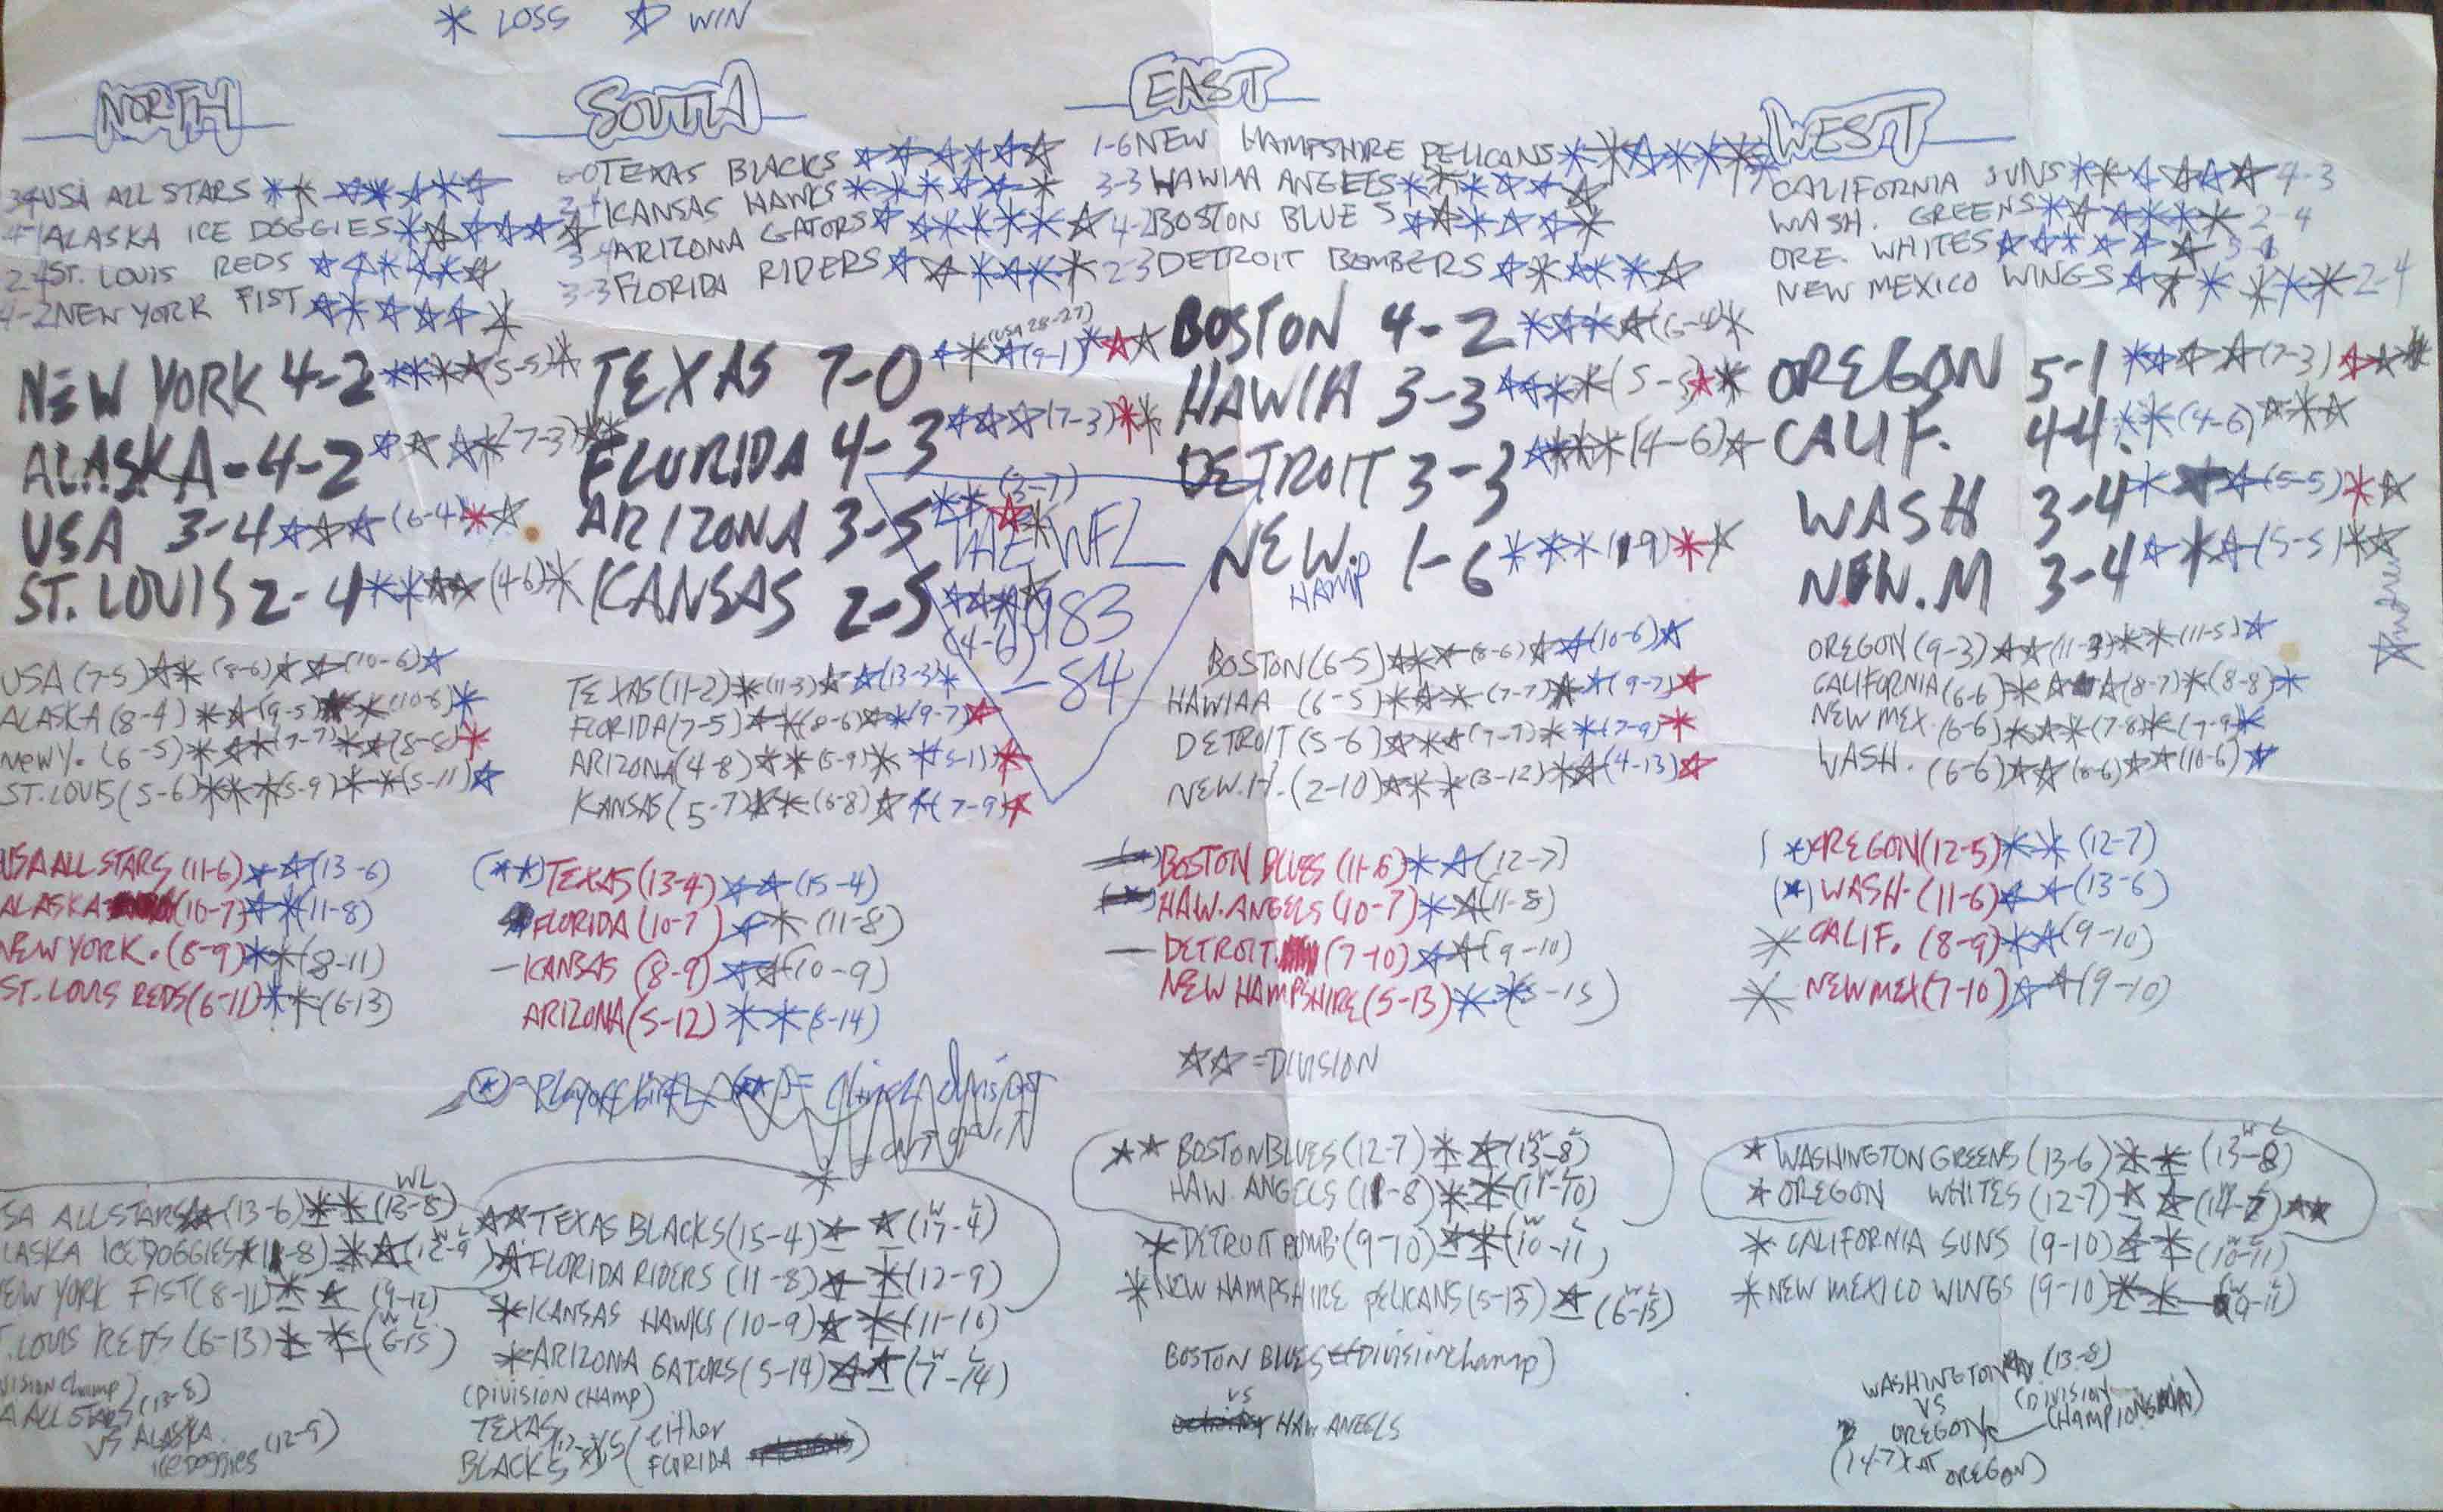 * LOSS ☆ WIN
NORTH
USA ALL STARS ** ☆*☆*☆
ALASKA ICE DOGGIES
ST. LOUIS REDS
4-2 NEW YORK FIST
SOUTH
TEXAS BLACKS
KANSAS HAWKS
3-4 ARIZONA GATORS
3-3 FLORIDA RIDERS
EAST
1-6 NEW HAMPSHIRE PELICANS
3-3 HAWIAA ANGELS
4-2 BOSTON BLUES
2-3 DETROIT BOMBERS
WEST
CALIFORNIA SUNS 4-3
WASH. GREENS 2-4
ORE. WHITES
NEW MEXICO WINGS 2-4
NEW YORK 4-2 (5-5)
ALASKA-4-2 (7-3)
USA 3-4 (6-4)
ST. LOUIS 2-4 (4-6)
(USA 28-27)
TEXAS 7-0 (9-1)
FLORIDA 4-3 (7-3)
ARIZONA 3-5 (3-7)
KANSAS 2-5 (4-6)
THE WFL
1983
-84
BOSTON 4-2 (6-4)
HAWIA 3-3
DETROIT 3-3 (4-6)
NEW. HAMP 1-6 (1-9)
OREGON 5-1 (7-3)
CALIF. 4-4 (4-6)
WASH 3-4 (5-5)
NEW.M 3-4 (5-5)
Andrew
USA (7-5) (8-6) (10-6)
ALASKA (8-4) (9-5) (10-6)
NEW Y. (6-5) (7-7) (8-8)
ST. LOUIS (5-6) (5-9) (5-11)
TEXAS (11-2) (11-3) (13-3)
FLORIDA (7-5) (8-6) (9-7)
ARIZONA (4-8) (5-9)
KANSAS (5-7) (6-8) (7-9)
BOSTON (6-5) (8-6) (10-6)
HAWIAA (6-5) (7-7) (9-7)
DETROIT (5-6) (7-7) (7-9)
NEW.H. (2-10) (3-12) (4-13)
OREGON (9-3) (11-5)
CALIFORNIA (6-6) (8-7) (8-8)
NEW MEX. (6-6) (7-8) (7-9)
WASH. (6-6) (10-6)
USA ALL STARS (11-6) *☆ (13-6)
ALASKA (10-7) ☆* (11-8)
NEW YORK. (8-9) ** (8-11)
ST. LOUIS REDS (6-11) ** (6-13)
(**) TEXAS (13-4) ☆☆ (15-4)
FLORIDA (10-7) ☆* (11-8)
— KANSAS (8-9) ☆☆ (10-9)
ARIZONA (5-12) ** (5-14)
BOSTON BLUES (11-6) *☆ (12-7)
HAW. ANGELS (10-7) *☆ (11-8)
— DETROIT (7-10) ☆☆ (9-10)
NEW HAMPSHIRE (5-13) ** (5-15)
(*) OREGON (12-5) ** (12-7)
(*) WASH. (11-6) ☆☆ (13-6)
* CALIF. (8-9) *☆ (9-10)
* NEW MEX (7-10) ☆☆ (9-10)
☆☆ = DIVISION
(*) = Playoff birth (**) = clinch division
USA ALLSTARS (13-6) ** (13-8) W L
ALASKA ICE DOGGIES (11-8) *☆ (12-9) W L
NEW YORK FIST (8-11) *☆ (9-12)
ST. LOUIS REDS (6-13) ** (6-15) W L
DIVISION champ)
USA ALL STARS (13-8)
VS ALASKA
ICE DOGGIES (12-9)
☆☆ TEXAS BLACKS (15-4) ☆ ☆ (17-4) W L
☆ FLORIDA RIDERS (11-8) ☆ * (12-9)
* KANSAS HAWKS (10-9) ☆ * (11-10)
* ARIZONA GATORS (5-14) ☆☆ (7-14) W L
(DIVISION CHAMP)
TEXAS
BLACKS VS (either
FLORIDA )
☆☆ BOSTON BLUES (12-7) * ☆ (13-8) W L
HAW. ANGELS (11-8) ** (11-10) W L
* DETROIT BOMB. (9-10) ☆* (10-11) W L
* NEW HAMPSHIRE PELICANS (5-15) ☆ (6-15) W L
BOSTON BLUES (Division champ)
VS
HAW ANGELS
* WASHINGTON GREENS (13-6) ** (13-8) W L
* OREGON WHITES (12-7) ☆ ☆ (14-7) ☆☆
* CALIFORNIA SUNS (9-10) ☆ * (10-11)
* NEW MEXICO WINGS (9-10) ** (9-11) W L
WASHINGTON (13-8)
VS (DIVISION
OREGON CHAMPIONSHIP)
(14-7) (AT OREGON)